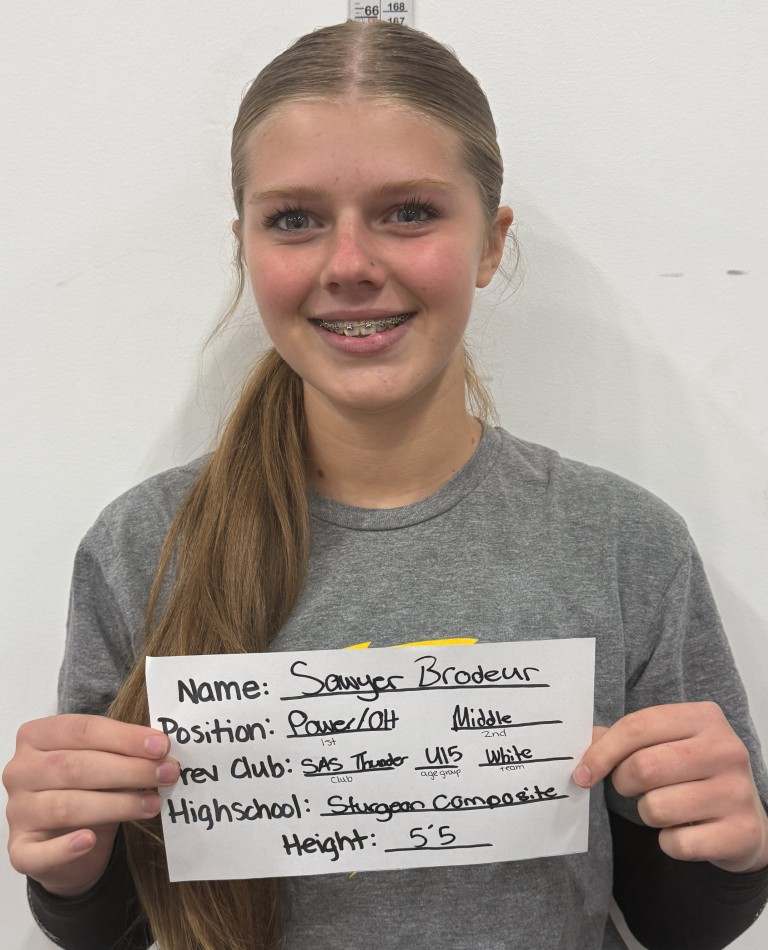 66 168
167
Name: Sawyer Brodeur
Position: Power/OH Middle
1st 2nd
Prev Club: SAS Thunder U15 White
club age group team
Highschool: Sturgeon Composite
Height: 5'5